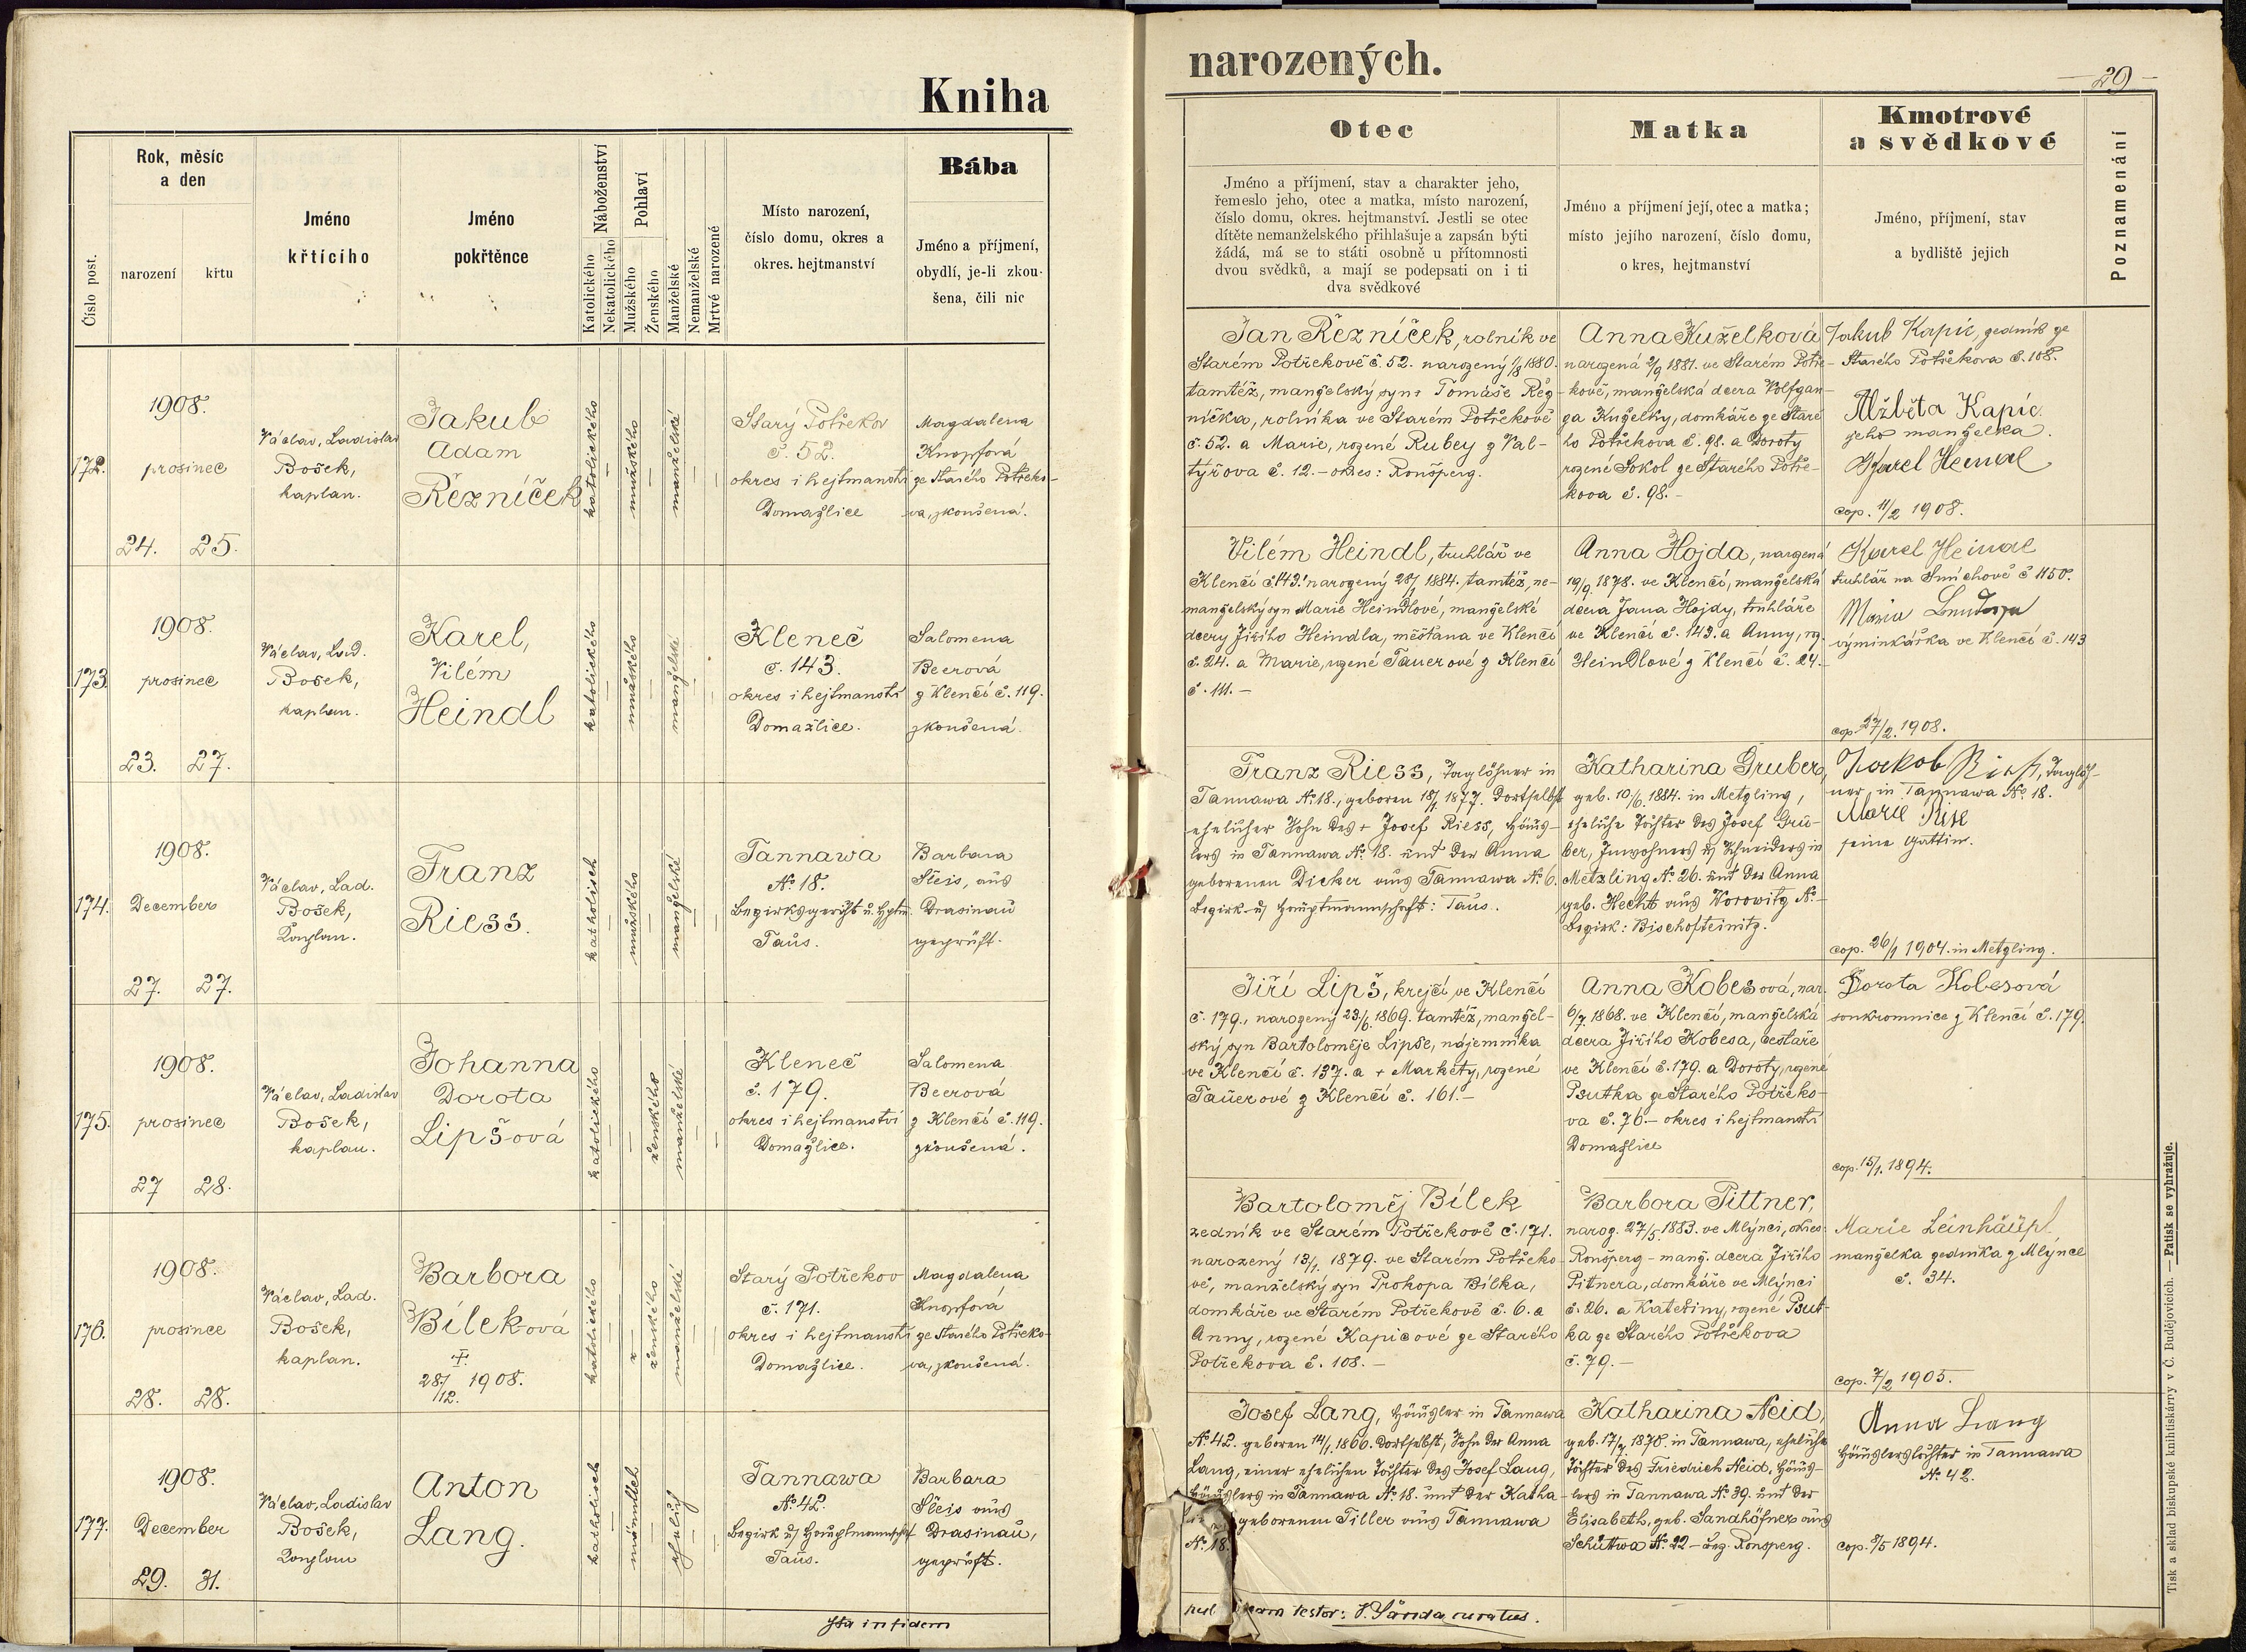 Kniha
narozených.
29
Číslo post.
Rok, měsíc
a den
narození
křtu
Jméno
křtícího
Jméno
pokřtěnce
Náboženství
Katolického
Nekatolického
Pohlaví
Mužského
Ženského
Manželské
Nemanželské
Mrtvé narozené
Místo narození,
číslo domu, okres a
okres. hejtmanství
Bába
Jméno a příjmení,
obydlí, je-li zkou-
šena, čili nic
Otec
Jméno a příjmení, stav a charakter jeho,
řemeslo jeho, otec a matka, místo narození,
číslo domu, okres. hejtmanství. Jestli se otec
dítěte nemanželského přihlašuje a zapsán býti
žádá, má se to státi osobně u přítomnosti
dvou svědků, a mají se podepsati on i ti
dva svědkové
Matka
Jméno a příjmení její, otec a matka;
místo jejího narození, číslo domu,
okres, hejtmanství
Kmotrové
a svědkové
Jméno, příjmení, stav
a bydliště jejich
Poznamenání
172.
1908.
prosinec
24. 25.
Václav, Ladislav
Bošek,
kaplan.
Jakub
Adam
Řezníček
katolického
mužského
manželské
Starý Potřekov
č. 52.
okres i hejtmanství
Domažlice
Magdalena
Knopfová
ze Starého Potřeko-
va, zkoušená.
Jan Řezníček, rolník ve
Starém Potřekově č. 52. narozený 1/8 1880.
tamtéž, manželský syn + Tomáše Řez-
níčka, rolníka ve Starém Potřekově
č. 52. a Marie, rozené Rubey z Val-
týřova č. 12. – okres: Ronšperg.
Anna Kuželková
narozená 2/9 1881. ve Starém Potře-
kově, manželská dcera Wolfgan-
ga Kuželky, domkáře ze Staré-
ho Potřekova č. 98. a Doroty
rozené Sokol ze Starého Potře-
kova č. 98. –
Jakub Kapic, zedník ze
Starého Potřekova č. 108.
Alžběta Kapic.
jeho manželka.
Karel Heindl
cop. 11/2 1908.
173.
1908.
prosinec
23. 27.
Václav, Lad.
Bošek,
kaplan.
Karel,
Vilém
Heindl
katolického
mužského
manželské
Kleneč
č. 143.
okres i hejtmanství
Domažlice.
Salomena
Beerová
z Klenčí č. 119.
zkoušená.
Vilém Heindl, truhlář ve
Klenčí č. 143. narozený 28/7 1884. tamtéž, ne-
manželský syn Marie Heindlové, manželské
dcery Jiřího Heindla, měšťana ve Klenčí
č. 24. a Marie, rozené Tauerové z Klenčí
č. 111. –
Anna Hojda, narozená
19/9. 1878. ve Klenčí, manželská
dcera Jana Hojdy, truhláře
ve Klenčí č. 143. a Anny, roz.
Heindlové z Klenčí č. 24. –
Karel Heindl
truhlář na Smíchově č 1150.
Maria
výminkářka ve Klenčí č. 143
cop. 27/2. 1908.
174.
1908.
December
27. 27.
Václav, Lad.
Bošek,
Kaplan.
Franz
Riess.
katholisch
mužského
manželské
Tannawa
No 18.
Bezirksgericht u. Hptm.
Taus.
Barbara
Sleis, aus
Drasinau
geprüft.
Franz Riess, Taglöhner in
Tannawa No. 18., geboren 18/1. 1877. dortselbst
ehelicher Sohn des + Josef Riess, Häus-
lers in Tannawa No. 18. und der Anna
geborenen Dicker aus Tannawa No. 6.
Bezirk u. Hauptmannschaft: Taus.
Katharina Gruber,
geb. 10/6. 1884. in Metzling,
eheliche Tochter des Josef Gru-
ber, Inwohners u. Schneiders in
Metzling No. 26. und der Anna
geb. Hecht aus Worowitz No. –
Bezirk: Bischofteinitz.
Jackob Riess, Taglöh-
ner in Tannawa No. 18.
Marie
seine Gattin.
cop. 26/1 1904. in Metzling.
175.
1908.
prosinec
27 28.
Václav, Ladislav
Bošek,
kaplan.
Johanna
Dorota
Lipš-ová
katolického
ženského
manželské
Kleneč
č. 179.
okres i hejtmanství
Domažlice.
Salomena
Beerová
z Klenčí č. 119.
zkoušená.
Jiří Lipš, krejčí ve Klenčí
č. 179., narozený 23/6. 1869. tamtéž, manžel-
ský syn Bartoloměje Lipše, nájemníka
ve Klenčí č. 137. a + Markéty, rozené
Tauerové z Klenčí č. 161. –
Anna Kobesová, nar.
6/7. 1868. ve Klenčí, manželská
dcera Jiřího Kobesa, cestáře
ve Klenčí č. 179. a Doroty, rozené
Psutka ze Starého Potřeko-
va č. 76. – okres i hejtmanství
Domažlice
Dorota Kobesová
soukromnice z Klenčí č. 179.
cop. 15/1. 1894.
176.
1908.
prosinec
28. 28.
Václav, Lad.
Bošek,
kaplan.
Barbora
Bílek-ová
+
28./12. 1908.
katolického
ženského
manželské
Starý Potřekov
č. 171.
okres i hejtmanství
Domažlice.
Magdalena
Knopfová
ze Starého Potřeko-
va, zkoušená.
Bartoloměj Bílek
zedník ve Starém Potřekově č. 171.
narozený 13/1. 1879. ve Starém Potřeko-
vě, manželský syn Prokopa Bílka,
domkáře ve Starém Potřekově č. 6. a
Anny, rozené Kapicové ze Starého
Potřekova č. 108. –
Barbora Pittner,
naroz. 27/5. 1883. ve Mlýnci, okres:
Ronšperg – manž. dcera Jiřího
Pittnera, domkáře ve Mlýnci
č. 26. a Kateřiny, rozené Psut-
ka ze Starého Potřekova
č. 79. –
Marie Leinhäupl
manželka zedníka z Mlýnce
č. 34.
cop. 7/2 1905.
177.
1908.
December
29. 31.
Václav, Ladislav
Bošek,
Kaplan
Anton
Lang.
katholisch
männlich
ehelich
Tannawa
No 42.
Bezirk u. Hauptmannschaft
Taus.
Barbara
Sleis aus
Drasinau,
geprüft.
Josef Lang, Häusler in Tannawa
No. 42. geboren 14/1. 1866. dortselbst, Sohn der Anna
Lang, einer ehelichen Tochter des Josef Lang,
Häuslers in Tannawa No. 18. und der Katha-
geborenen Tiller aus Tannawa
No. 18.
Katharina Neid,
geb. 17/7. 1878. in Tannawa, eheliche
Tochter des Friedrich Neid, Häus-
lers in Tannawa No. 39. und der
Elisabeth, geb. Sandhöfner aus
Schüttwa No. 22 – Bez. Ronsperg.
Anna Lang
Häuslerstochter in Tannawa
No. 42.
cop. 8/5 1894.
Ita in fidem
testor: V. Šanda, curatus.
Tisk a sklad biskupské knihtiskárny v Č. Budějovicích. — Patisk se vyhražuje.